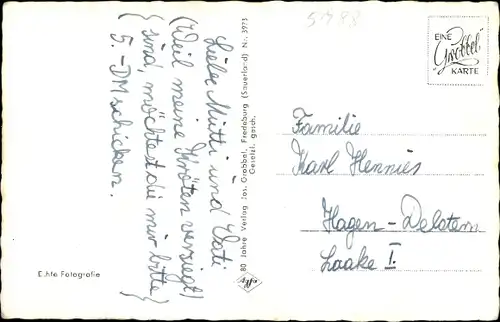 Liebe Mutti und Vati
(Weil meine Kröten versiegt)
{sind, möchtest die mir bitte}
5.-DM schicken.
Echte Fotografie
80 Jahre Verlag Jos. Grobbel, Fredeburg (Sauerland) Nr. 3973
Gesetzl. gesch.
Agfa
5488
EINE
Grobbel
KARTE
Familie
Karl Hennies
Hagen-Delstern
Laake I.